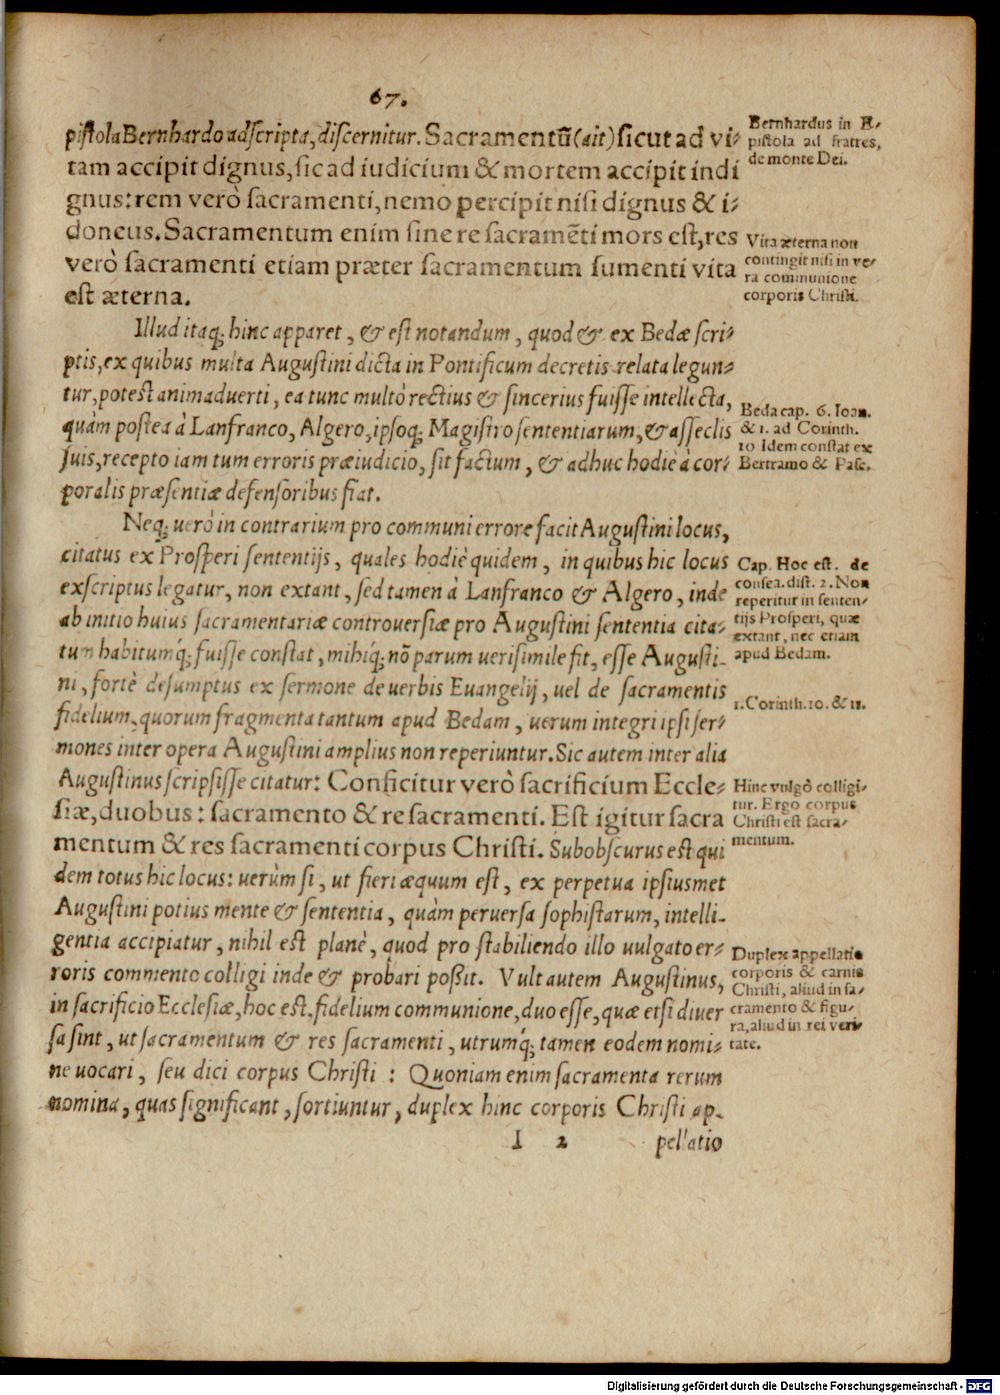 67.
pistola Bernhardo adscripta, discernitur. Sacramentū (ait) sicut ad vi-
tam accipit dignus, sic ad iudicium & mortem accipit indi
gnus: rem verò sacramenti, nemo percipit nisi dignus & i-
doneus. Sacramentum enim sine re sacramēti mors est, res
verò sacramenti etiam præter sacramentum sumenti vita
est æterna.
Illud itaq; hinc apparet, & est notandum, quod & ex Bedæ scri-
ptis, ex quibus multa Augustini dicta in Pontificum decretis relata legun-
tur, potest animaduerti, ea tunc multò rectius & sincerius fuisse intellecta,
quàm postea à Lanfranco, Algero, ipsoq; Magistro sententiarum, & asseclis
suis, recepto iam tum erroris præiudicio, sit factum, & adhuc hodie à cor-
poralis præsentiæ defensoribus fiat.
Neq; uerò in contrarium pro communi errore facit Augustini locus,
citatus ex Prosperi sententijs, quales hodiè quidem, in quibus hic locus
exscriptus legatur, non extant, sed tamen à Lanfranco & Algero, inde
ab initio huius sacramentariæ controuersiæ pro Augustini sententia cita-
tum habitumq́; fuisse constat, mihiq; nō parum uerisimile fit, esse Augusti-
ni, fortè desumptus ex sermone de uerbis Euangelij, uel de sacramentis
fidelium, quorum fragmenta tantum apud Bedam, uerum integri ipsi ser-
mones inter opera Augustini amplius non reperiuntur. Sic autem inter alia
Augustinus scripsisse citatur: Conficitur verò sacrificium Eccle-
siæ, duobus: sacramento & re sacramenti. Est igitur sacra
mentum & res sacramenti corpus Christi. Subobscurus est qui
dem totus hic locus: uerùm si, ut fieri æquum est, ex perpetua ipsiusmet
Augustini potius mente & sententia, quàm peruersa sophistarum, intelli-
gentia accipiatur, nihil est planè, quod pro stabiliendo illo uulgato er-
roris commento colligi inde & probari poßit. Vult autem Augustinus,
in sacrificio Ecclesiæ, hoc est, fidelium communione, duo esse, quæ etsi diuer
sa sint, ut sacramentum & res sacramenti, utrumq́; tamen eodem nomi-
ne uocari, seu dici corpus Christi: Quoniam enim sacramenta rerum
nomina, quas significant, sortiuntur, duplex hinc corporis Christi ap-
I 2 pellatio
Bernhardus in E-
pistola ad fratres,
de monte Dei.
Vita æterna non
contingit nisi in ve-
ra communione
corporis Christi.
Beda cap. 6. Ioan.
& 1. ad Corinth.
10 Idem constat ex
Bertramo & Pasc.
Cap. Hoc est. de
consea. dist. 2. Non
reperitur in senten-
tijs Prosperi, quæ
extant, nec etiam
apud Bedam.
1. Corinth. 10. & 11.
Hinc vulgò colligi-
tur. Ergo corpus
Christi est sacra-
mentum.
Duplex appellatio
corporis & carnis
Christi, aliud in sa-
cramento & figu-
ra, aliud in rei veri-
tate.
Digitalisierung gefördert durch die Deutsche Forschungsgemeinschaft - DFG